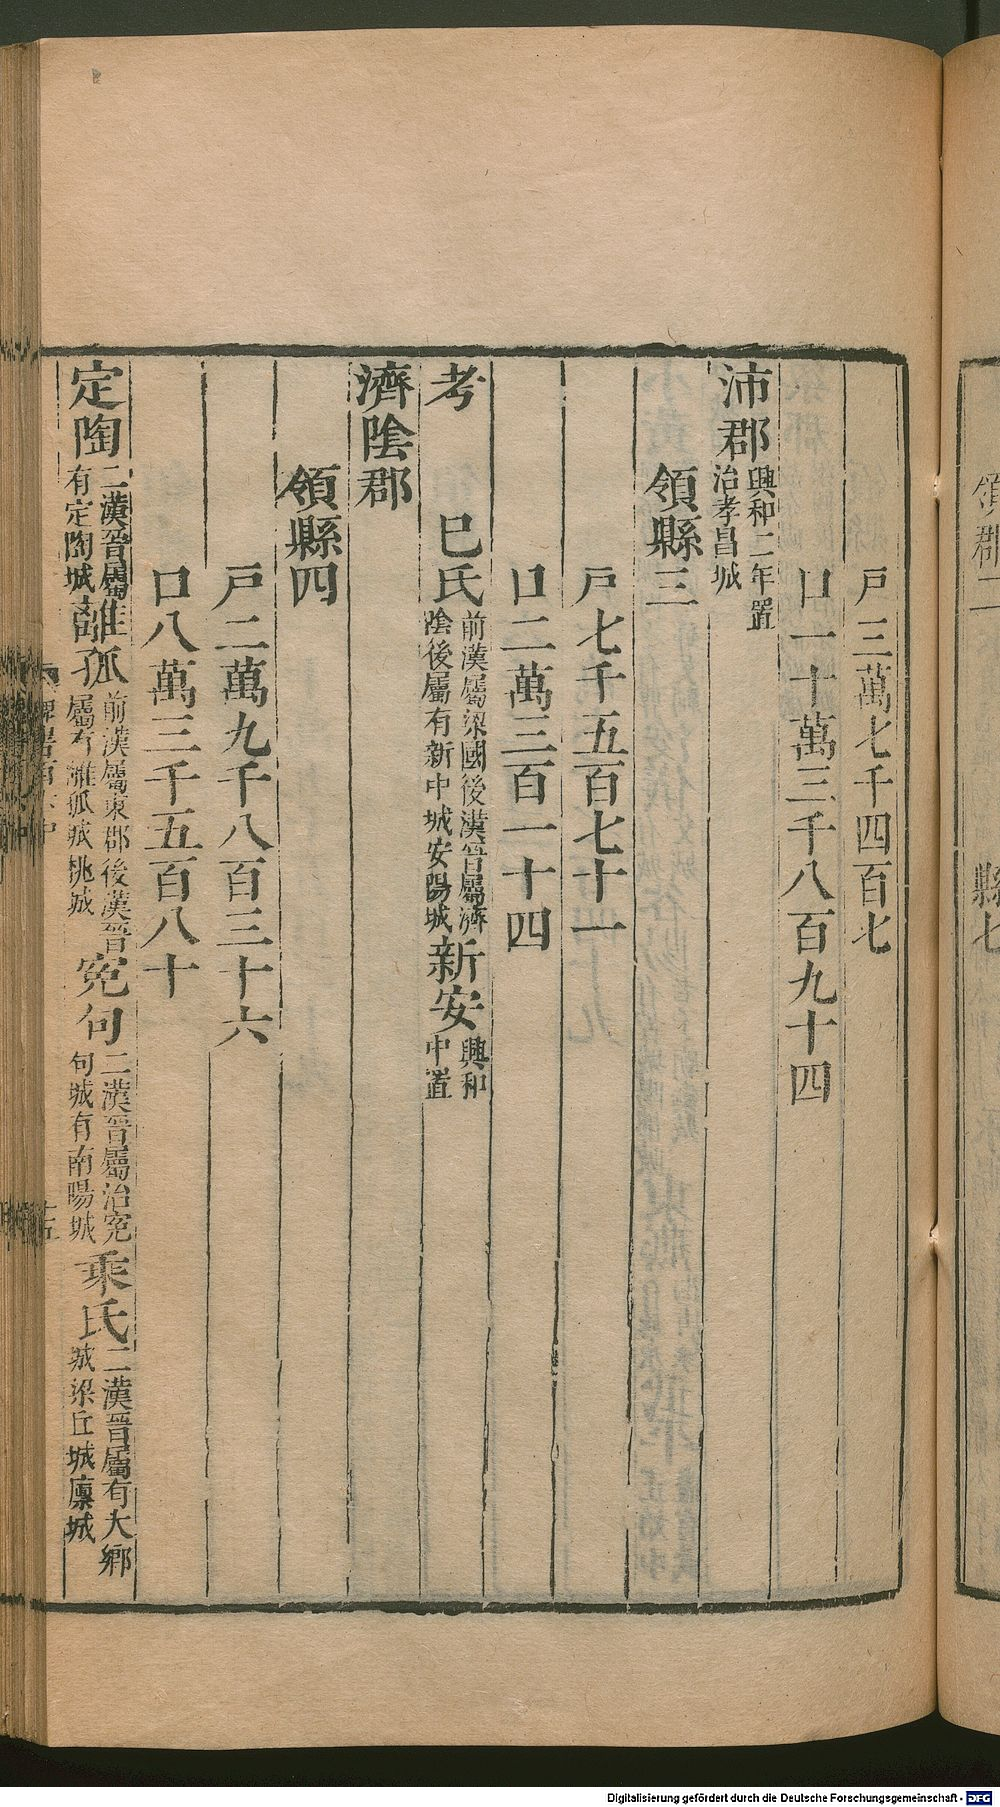 領郡二 縣七
戶三萬七千四百七
口一十萬三千八百九十四
沛郡 興和二年置
治孝昌城
領縣三
戶七千五百七十一
口二萬三百一十四
考 巳氏 前漢屬梁國後漢晉屬濟
陰後屬有新中城安陽城 新安 興和
中置
濟陰郡
領縣四
戶二萬九千八百三十六
口八萬三千五百八十
定陶 二漢晉屬
有定陶城 離狐 前漢屬東郡後漢晉
屬有離狐城桃城 冤句 二漢晉屬治冤
句城有南陽城 乘氏 二漢晉屬有大鄉
城梁丘城廩城
Digitalisierung gefördert durch die Deutsche Forschungsgemeinschaft - DFG